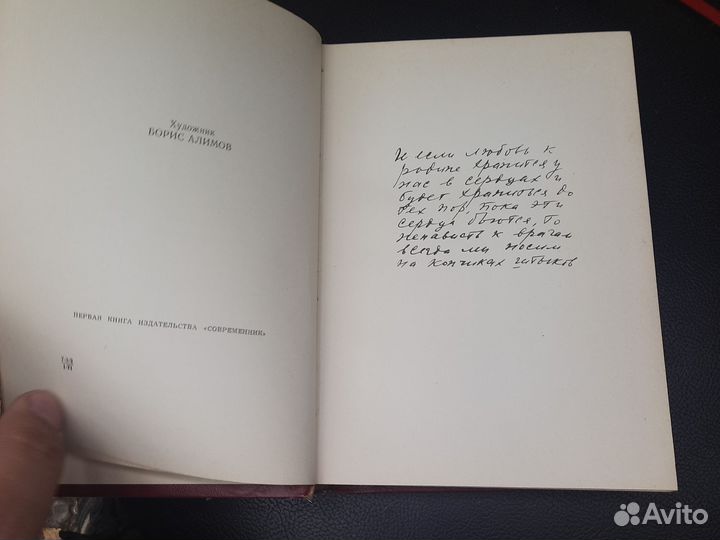 Художник
БОРИС АЛИМОВ
ПЕРВАЯ КНИГА ИЗДАТЕЛЬСТВА «СОВРЕМЕННИК»
И если любовь к
родине хранится у
нас в сердцах и
будет храниться до
тех пор, пока эти
сердца бьются, то
ненависть к врагам
всегда мы носим
на кончиках штыков
Avito